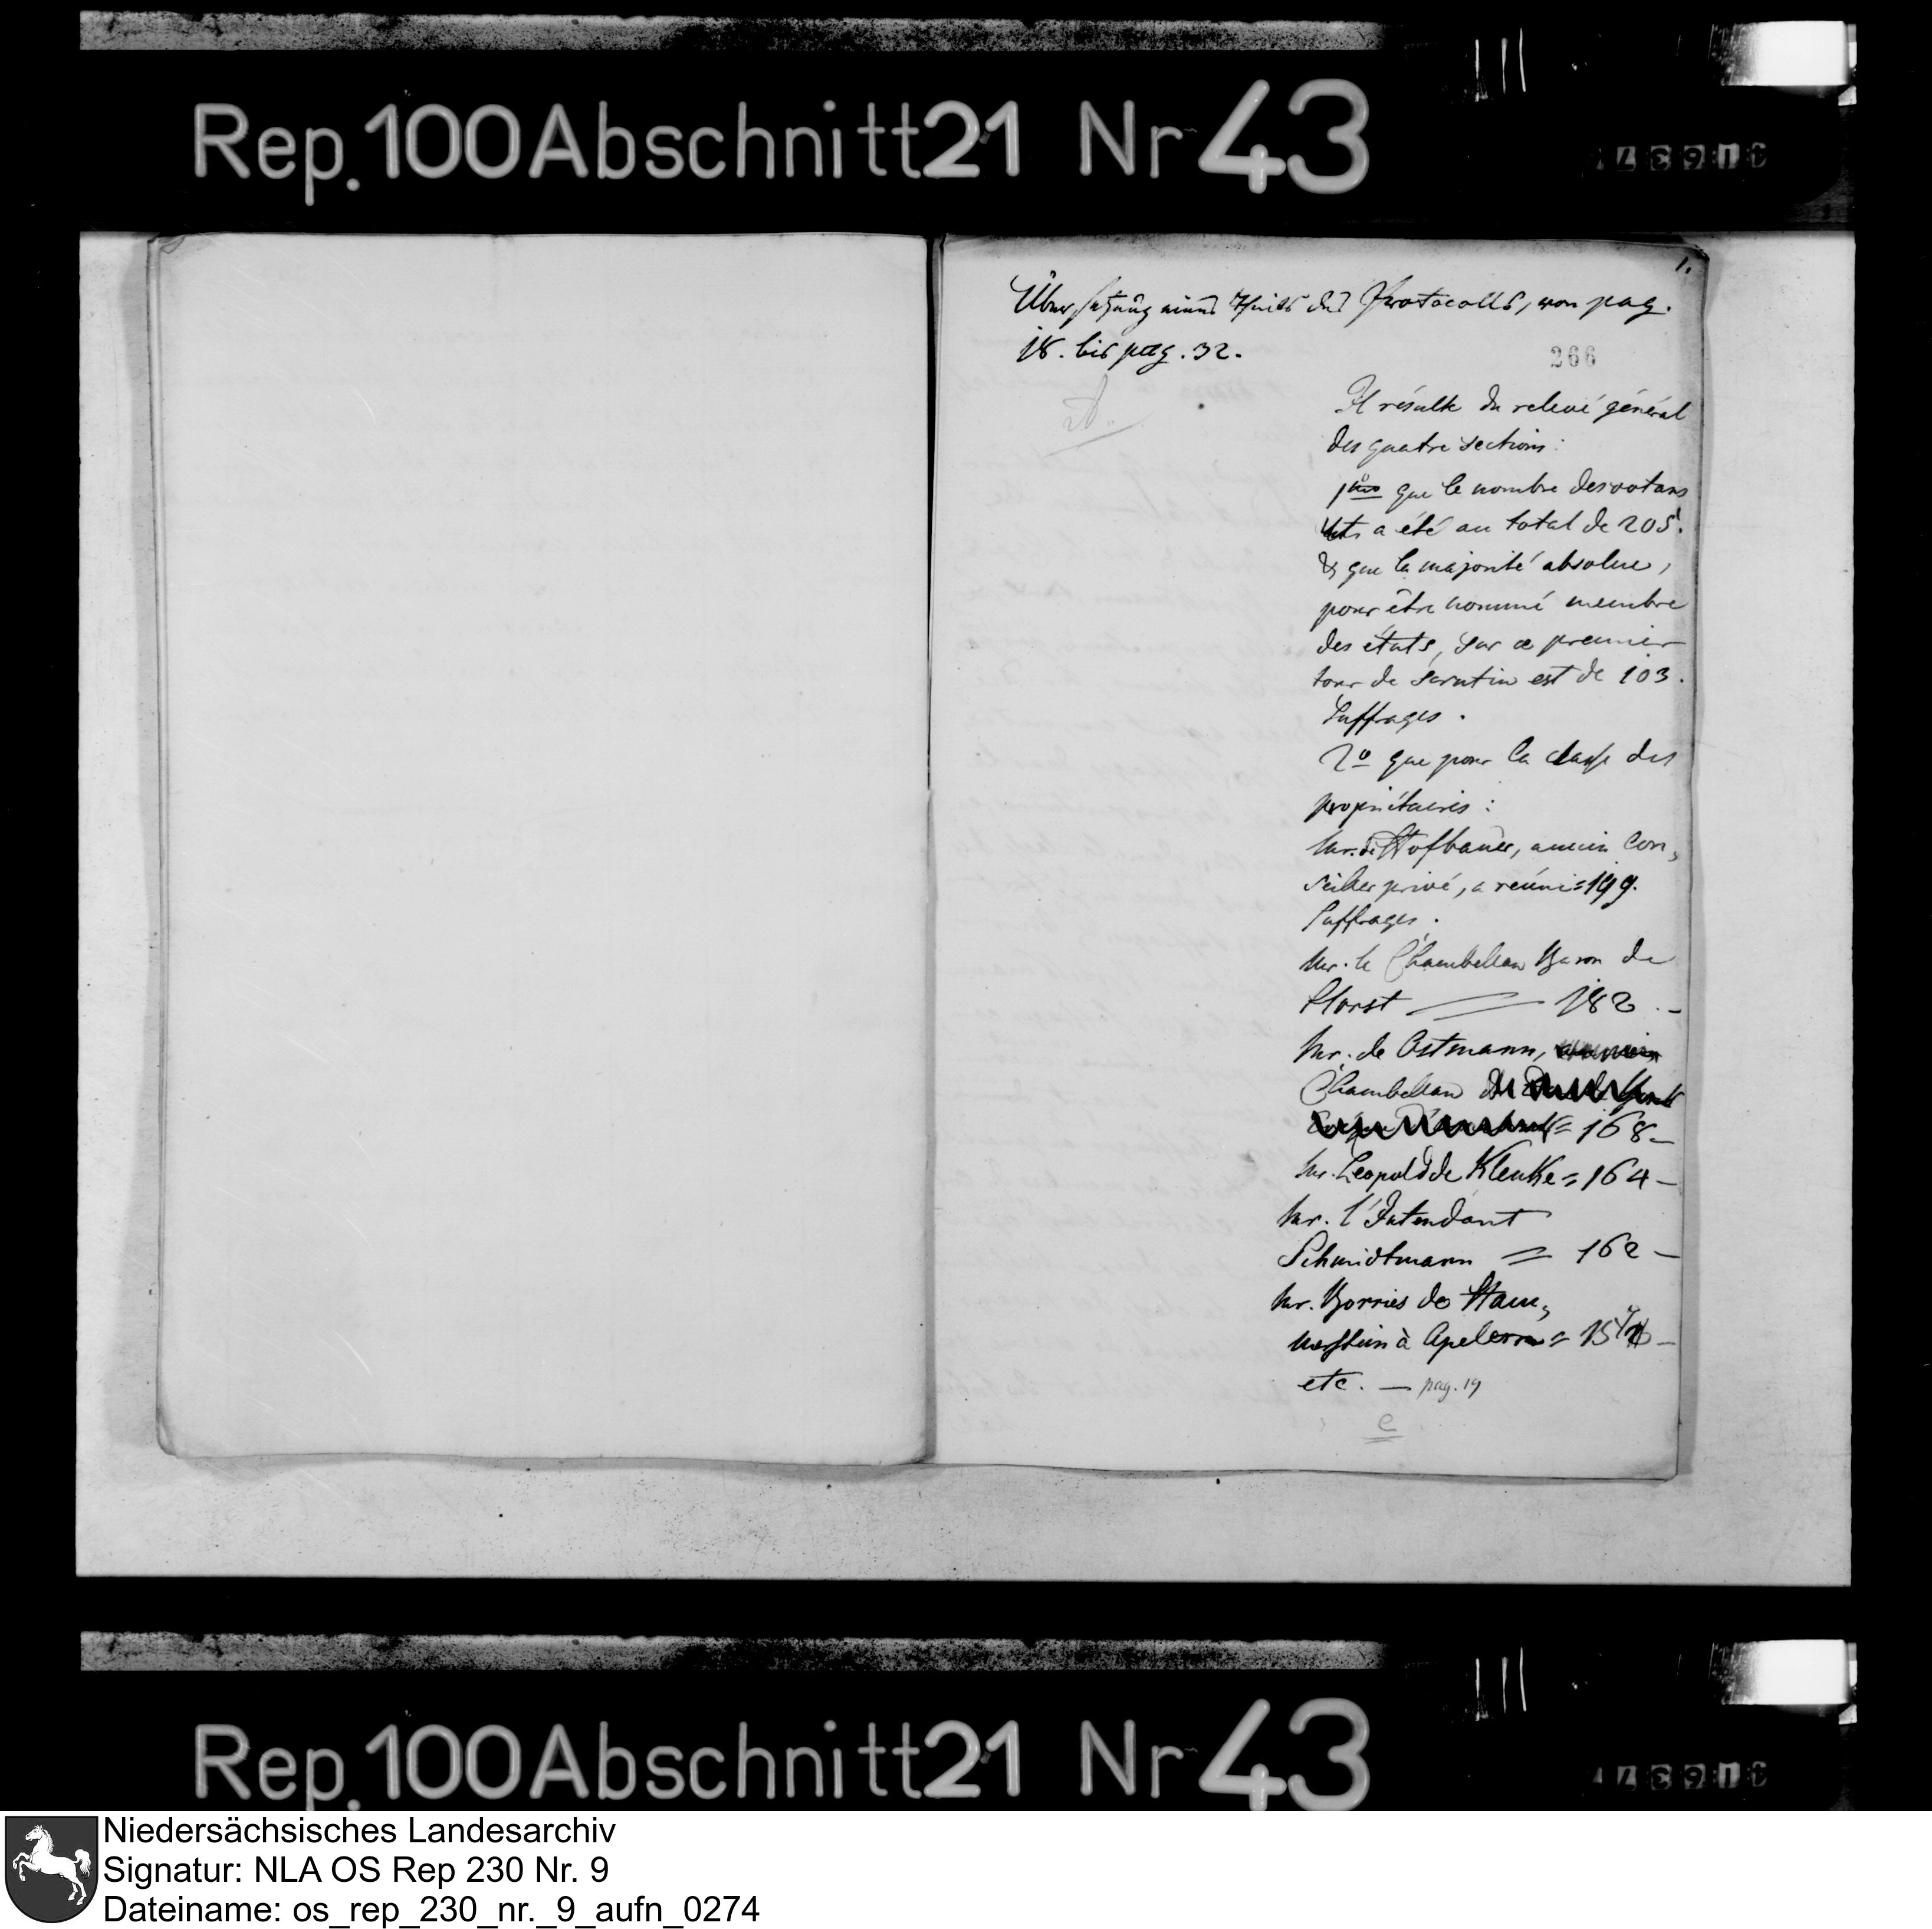 Rep. 100 Abschnitt 21 Nr 43
1.
Übersetzung eines Theils des Protocolls, von pag.
18. bis pag. 32.
266
A.
Il résulte du relevé général
des quatre sections:
1mo que le nombre des votans
a été au total de 205.
& que la majorité absolue,
pour être nommé membre
des états, sur ce premier
tour de scrutin est de 103.
Suffrages.
2o que pour la classe des
propriétaires:
Mr. de Hofbauer, ancien Con,
seiller privé, a réuni = 199.
Suffrages.
Mr. le Chambellan Baron de
Horst — 182. -
Mr. de Ostmann,
Chambellan
= 168 -
Mr. Leopold de Klenke = 164 -
Mr. l'Intendant
Schmidtmann = 162 -
Mr. Borries de Ham,
merstein à Apelern = -
etc. — pag. 19
e
Rep. 100 Abschnitt 21 Nr 43
Niedersächsisches Landesarchiv
Signatur: NLA OS Rep 230 Nr. 9
Dateiname: os_rep_230_nr._9_aufn_0274